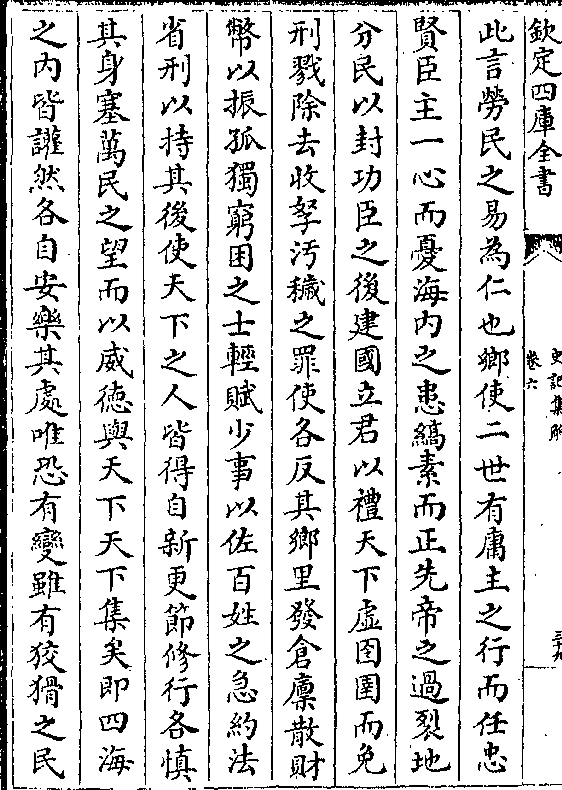 欽定四庫全書
史記集解
卷六
三十九
此言勞民之易為仁也鄉使二世有庸主之行而任忠
賢臣主一心而憂海内之患縞素而正先帝之過裂地
分民以封功臣之後建國立君以禮天下虚囹圄而免
刑戮除去收孥汚穢之罪使各反其鄉里發倉廪散財
幣以振孤獨窮困之士輕賦少事以佐百姓之急約法
省刑以持其後使天下之人皆得自新更節修行各慎
其身塞萬民之望而以威徳與天下天下集矣即四海
之内皆讙然各自安樂其處唯恐有變雖有狡猾之民